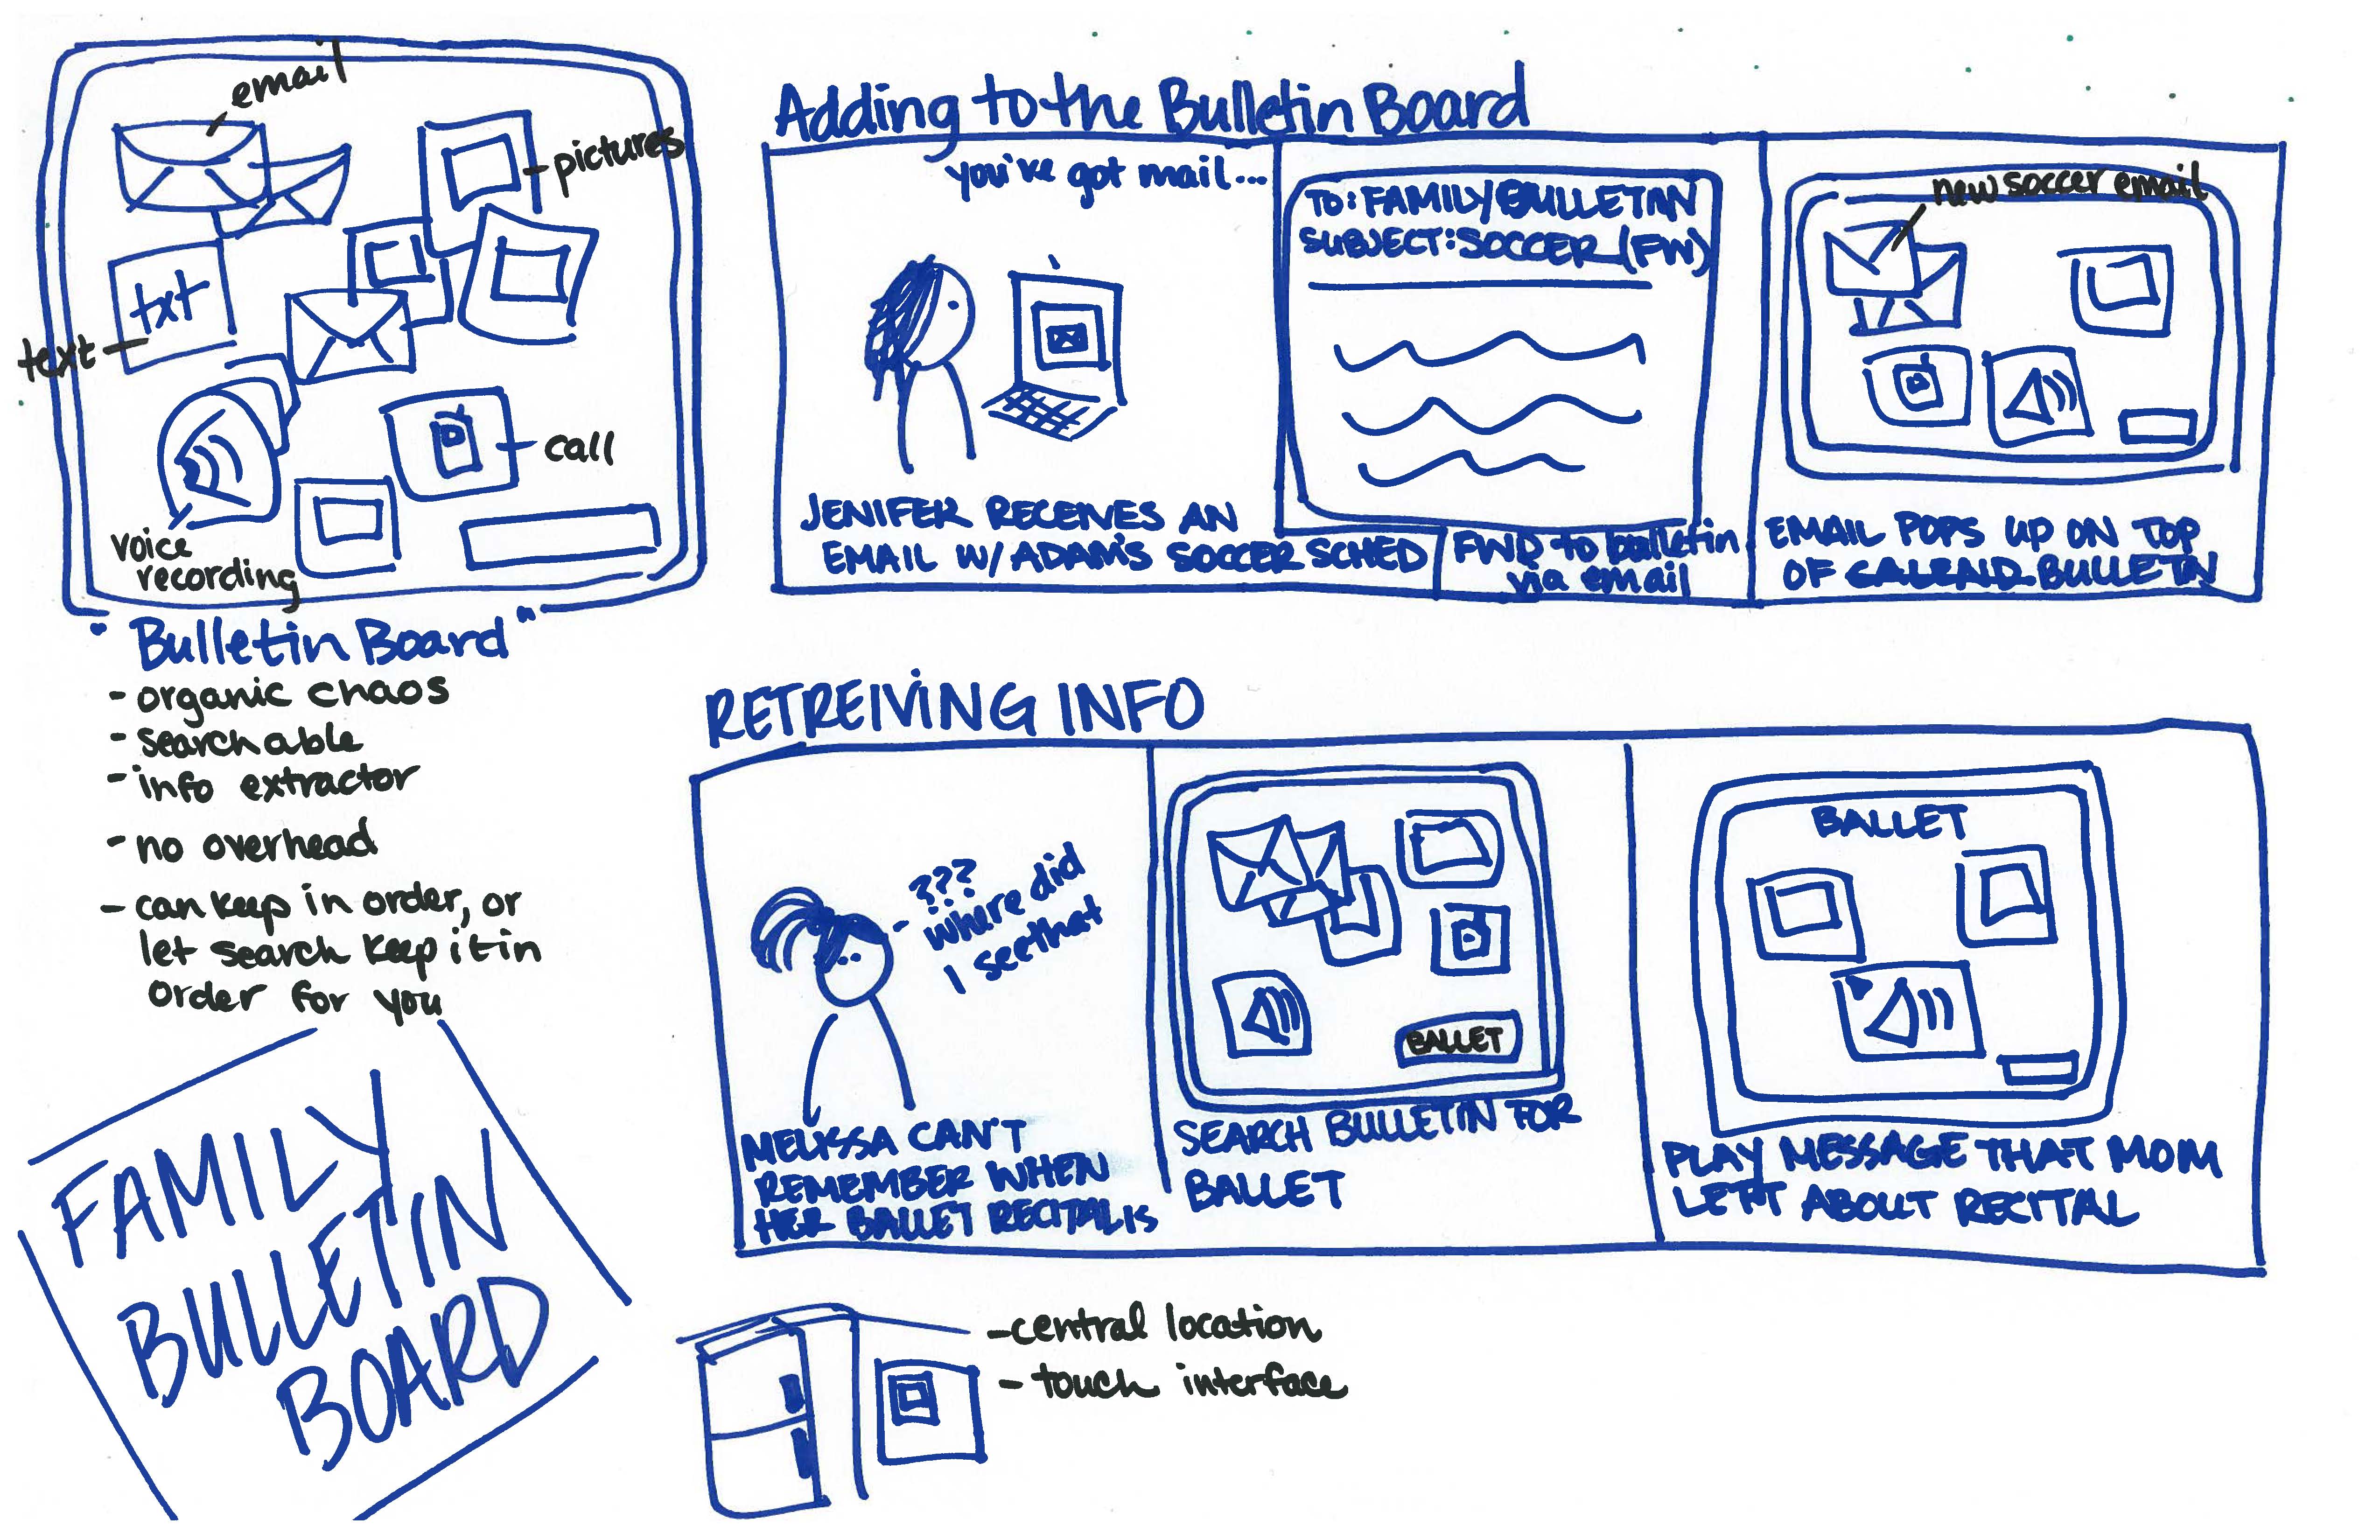 email
pictures
txt
text
call
voice
recording
"Bulletin Board"
- organic chaos
- searchable
- info extractor
- no overhead
- can keep in order, or
let search keep it in
order for you
FAMILY
BULLETIN
BOARD
Adding to the Bulletin Board
you've got mail...
JENIFER RECEIVES AN
EMAIL W/ ADAM'S SOCCER SCHED
TO: FAMILY BULLETIN
SUBJECT: SOCCER (FW)
FWD to bulletin
via email
new soccer email
EMAIL POPS UP ON TOP
OF CALEND. BULLETIN
RETREIVING INFO
- ???
where did
I see that
MELISSA CAN'T
REMEMBER WHEN
HER BALLET RECITAL IS
BALLET
SEARCH BULLETIN FOR
BALLET
BALLET
PLAY MESSAGE THAT MOM
LEFT ABOUT RECITAL
- central location
- touch interface